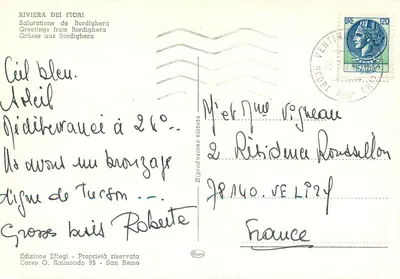 RIVIERA DEI FIORI
Salutations de Bordighera
Greetings from Bordighera
Grüsse aus Bordighera
120
VENTIM
Ciel bleu.
Soleil
Méditerranée à 26°..
Ns avons un bronzage
digne de Tucson ...
Grosses bises Roberte
Riproduzione vietata
M et Mme Vigneau
2 Résidence Roussillon
78140. VELIZY
France
Edizione Effegi - Proprietà riservata
Corso O. Raimondo 95 - San Remo